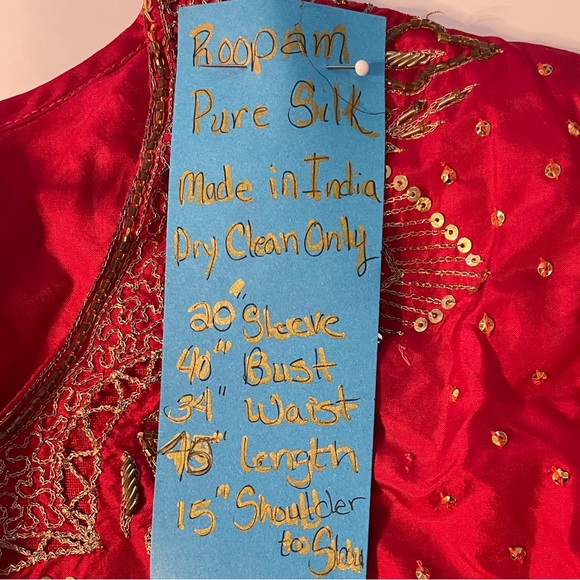 Roopam
Pure Silk
Made in India
Dry Clean Only
20" Sleeve
40" Bust
34" Waist
" Length
15" Shoulder
to